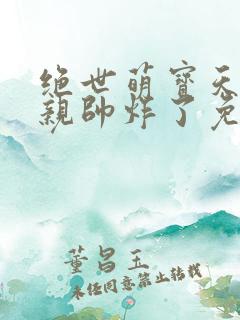 绝世萌寳天
親帥炸了免
董昌玉
未经同意禁止转载